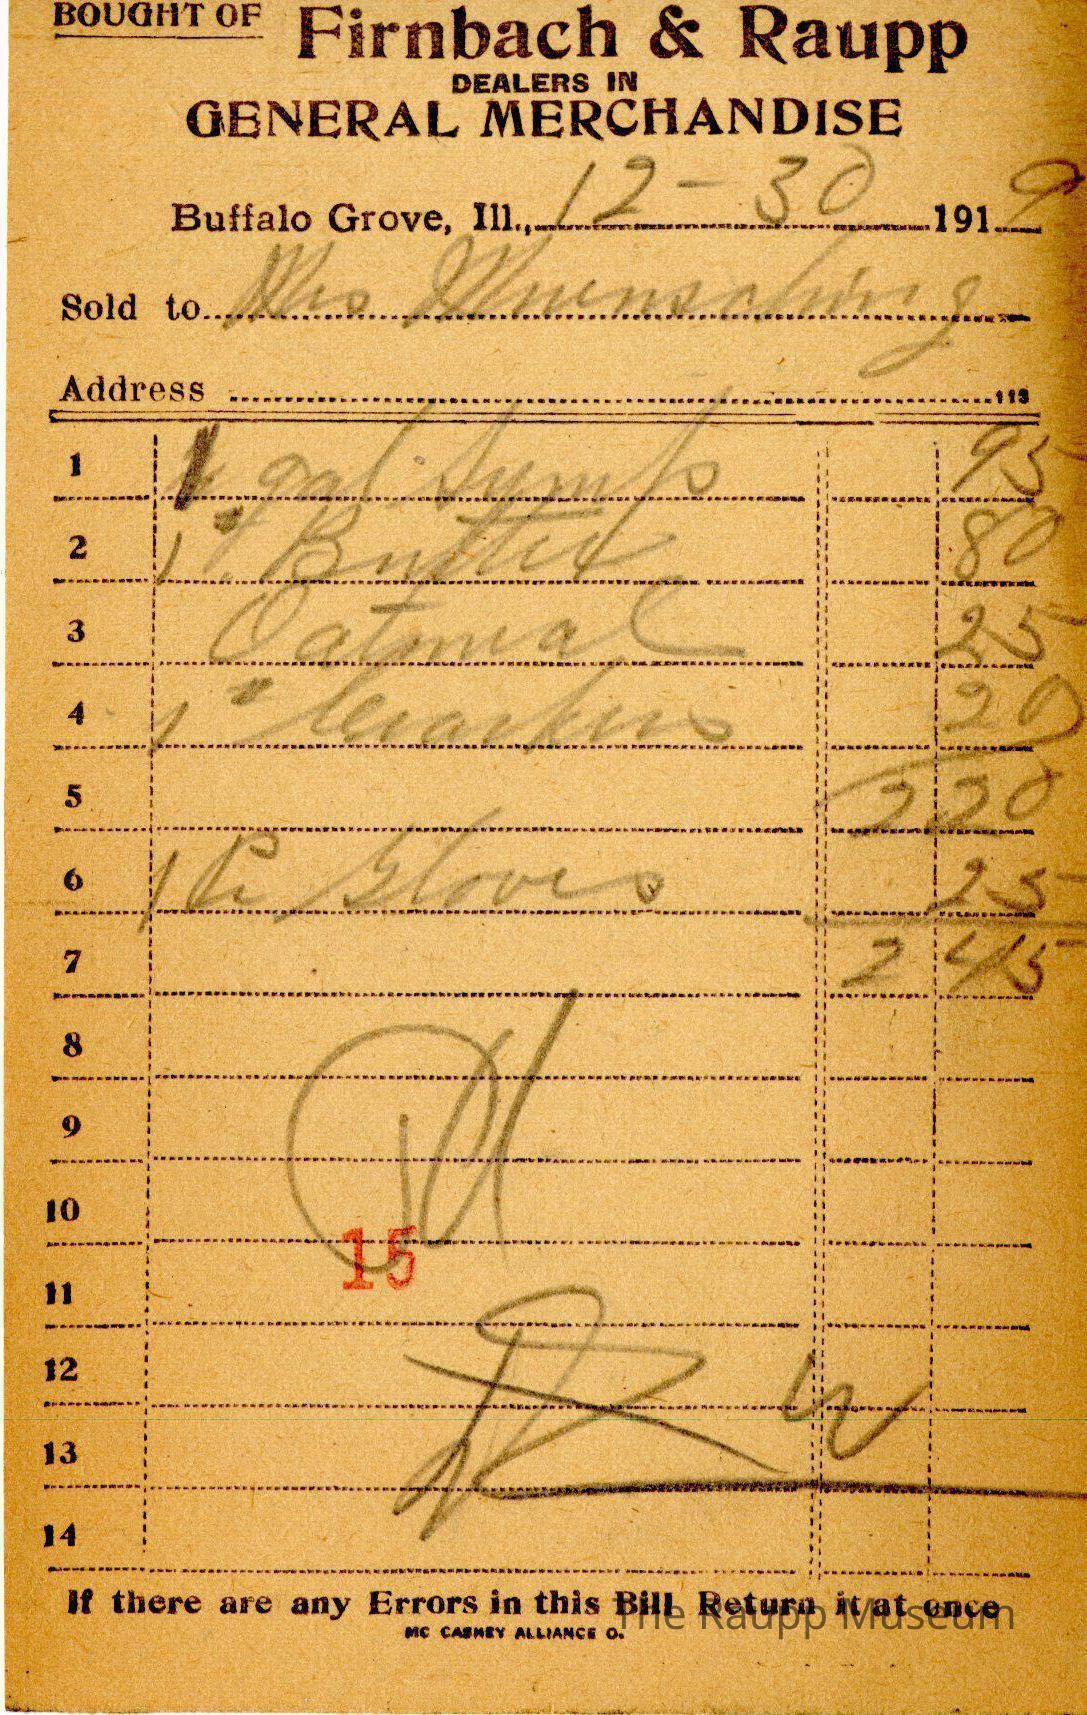 BOUGHT OF Firnbach & Raupp
DEALERS IN
GENERAL MERCHANDISE
Buffalo Grove, Ill., 12-30 1919
Sold to Mrs Muensching
Address 113
1 gal Syrup 95
2 1 # Butter 80
3 Oatmeal 25
4 1 # Crackers 20
5 2 20
6 1 Pr Gloves 25
7 2 45
8
9
10
15
11
12
13
14
If there are any Errors in this Bill Return it at once
MC CASKEY ALLIANCE O.
The Raupp Museum